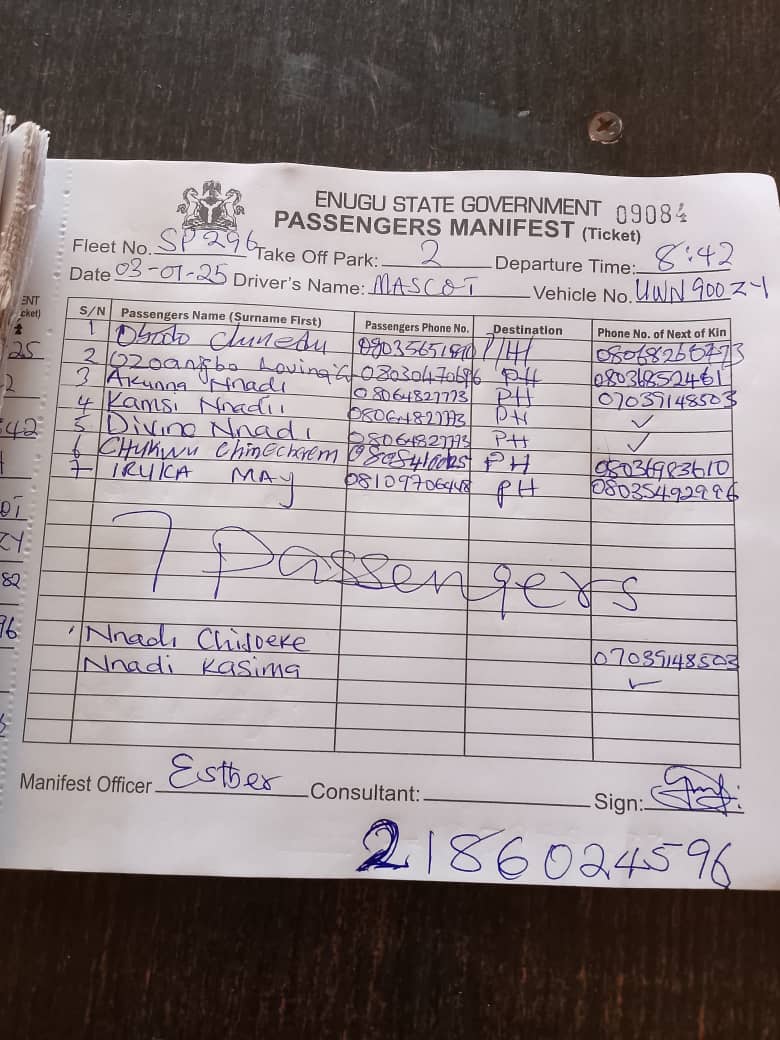 ENUGU STATE GOVERNMENT 09084
PASSENGERS MANIFEST (Ticket)
Fleet No. SP 296 Take Off Park: 2 Departure Time: 8:42
Date 03-01-25 Driver's Name: MASCOT Vehicle No. UWN 900 ZY
S/N Passengers Name (Surname First) Passengers Phone No. Destination Phone No. of Next of Kin
1 Obodo Chinedu P/H
2 08030470686 PH 08036852461
3 Akunna Nnadi 08064827773 PH 07039148503
4 Kamsi Nnadi 08064827773 PH ✓
5 Divine Nnadi 08064827773 PH ✓
6 CHUKWU PH 08036983610
7 IRUKA MAY 08109706448 PH 08035492996
7 Passengers
Nnadi 07039148503
Nnadi Kasima ✓
Manifest Officer Esther Consultant: Sign:
2186024596
ENT
cket)
25
2
42
ZY
82
96